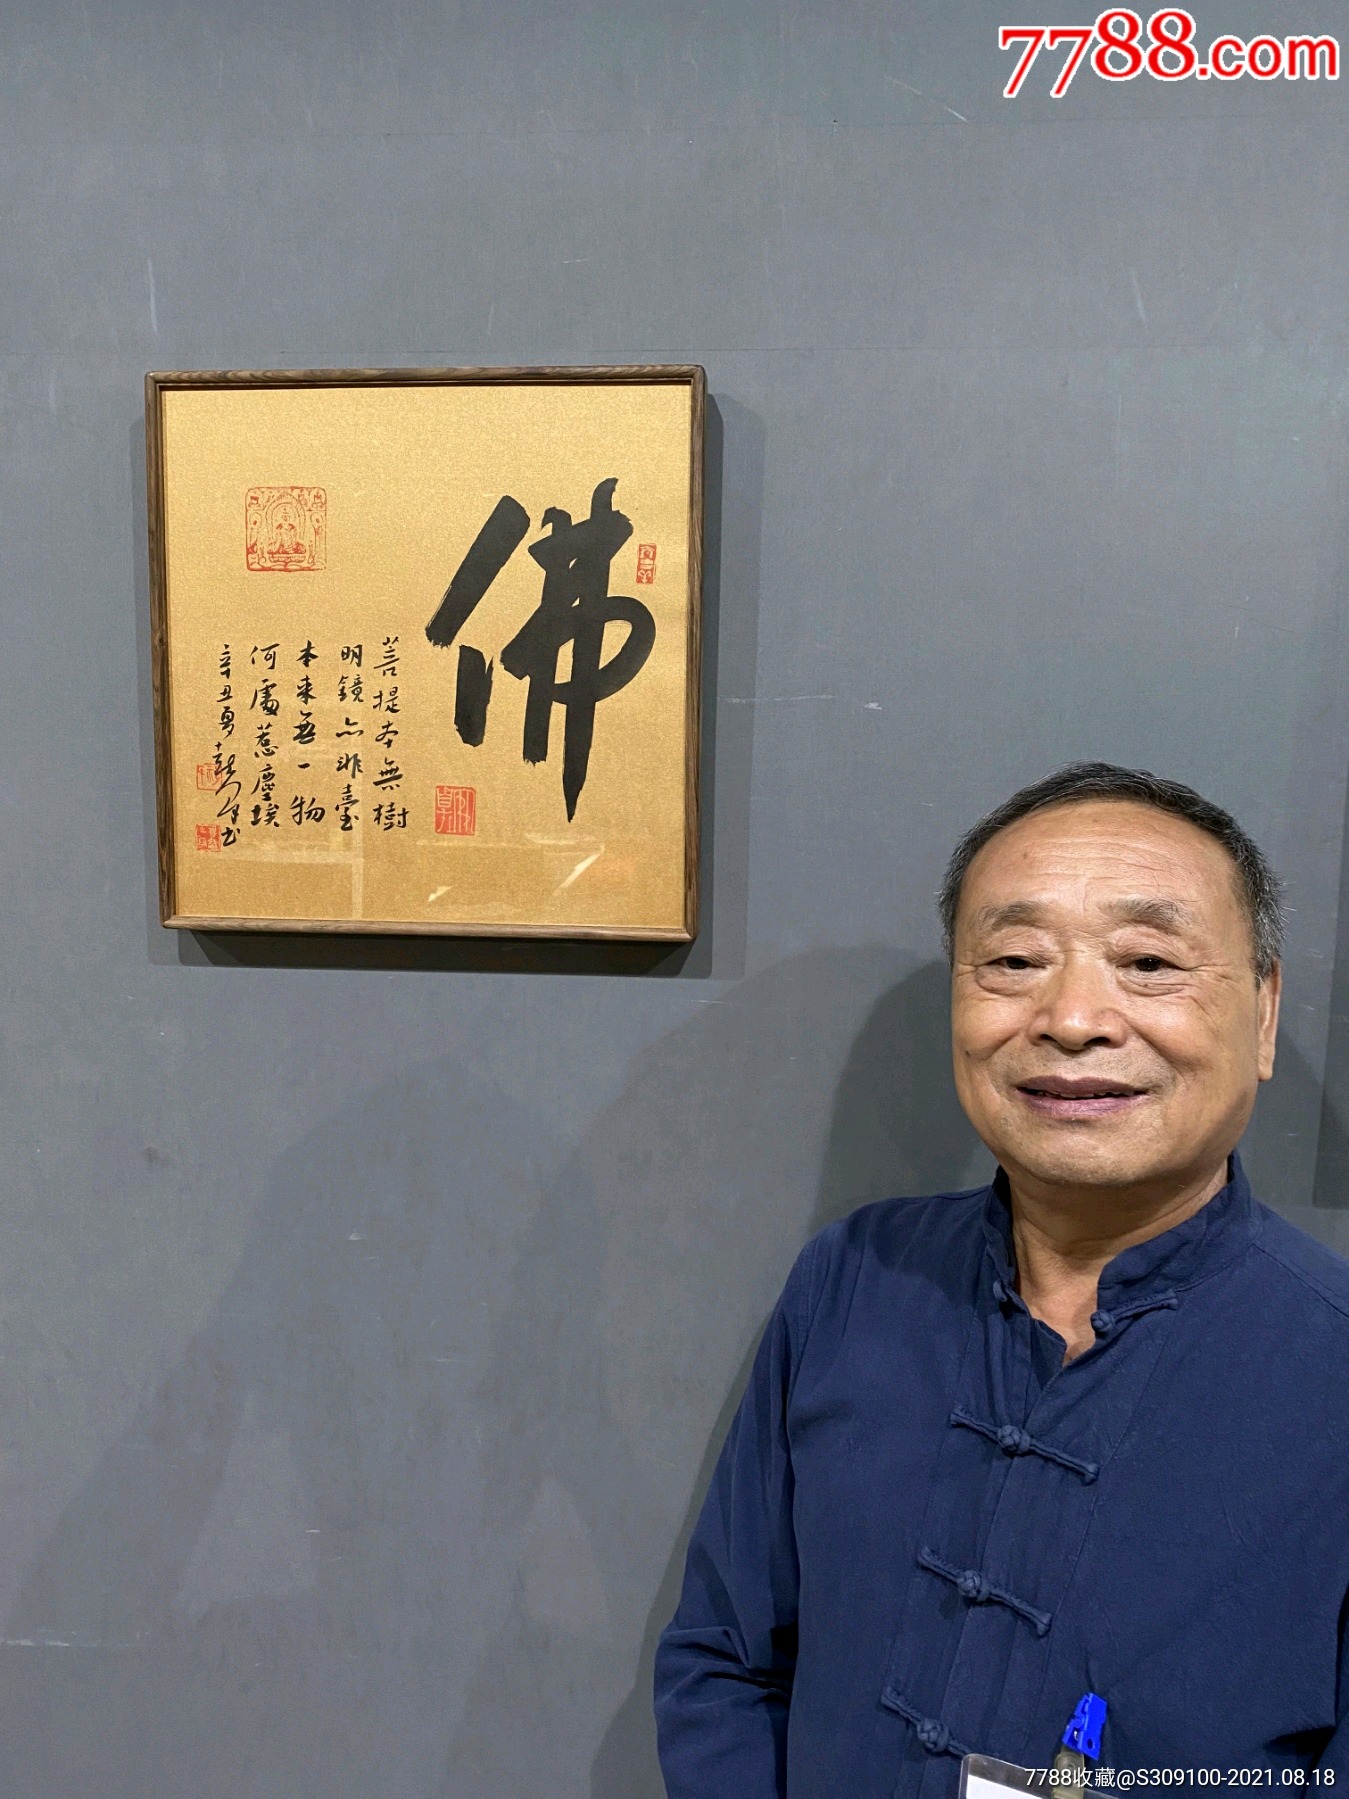 7788.com
佛
菩提本無樹
明鏡亦非臺
本来無一物
何處惹塵埃
辛丑夏
书
7788收藏@S309100-2021.08.18